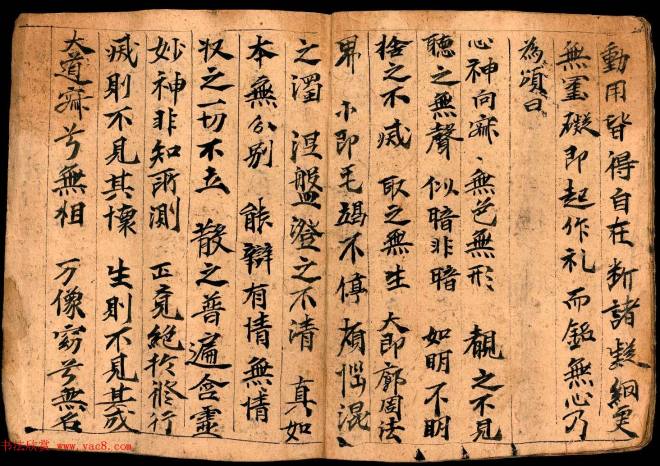 動用皆得自在断諸疑網更
無罣礙即起作礼而銘無心乃
為頌曰
心神向寂、無色無形 覩之不見
聽之無聲 似暗非暗 如明不明
捨之不滅 取之無生 大即廓周法
界 小即毛竭不停 煩惱混
之濁 涅盤澄之不清 真如
本無分別 能辯有情無情
収之一切不立 散之普遍含靈
妙神非知所測 正覓絶於修行
滅則不見其懷 生則不見其成
大道寂兮無相 万像窈兮無名
书法欣赏 www.yac8.com